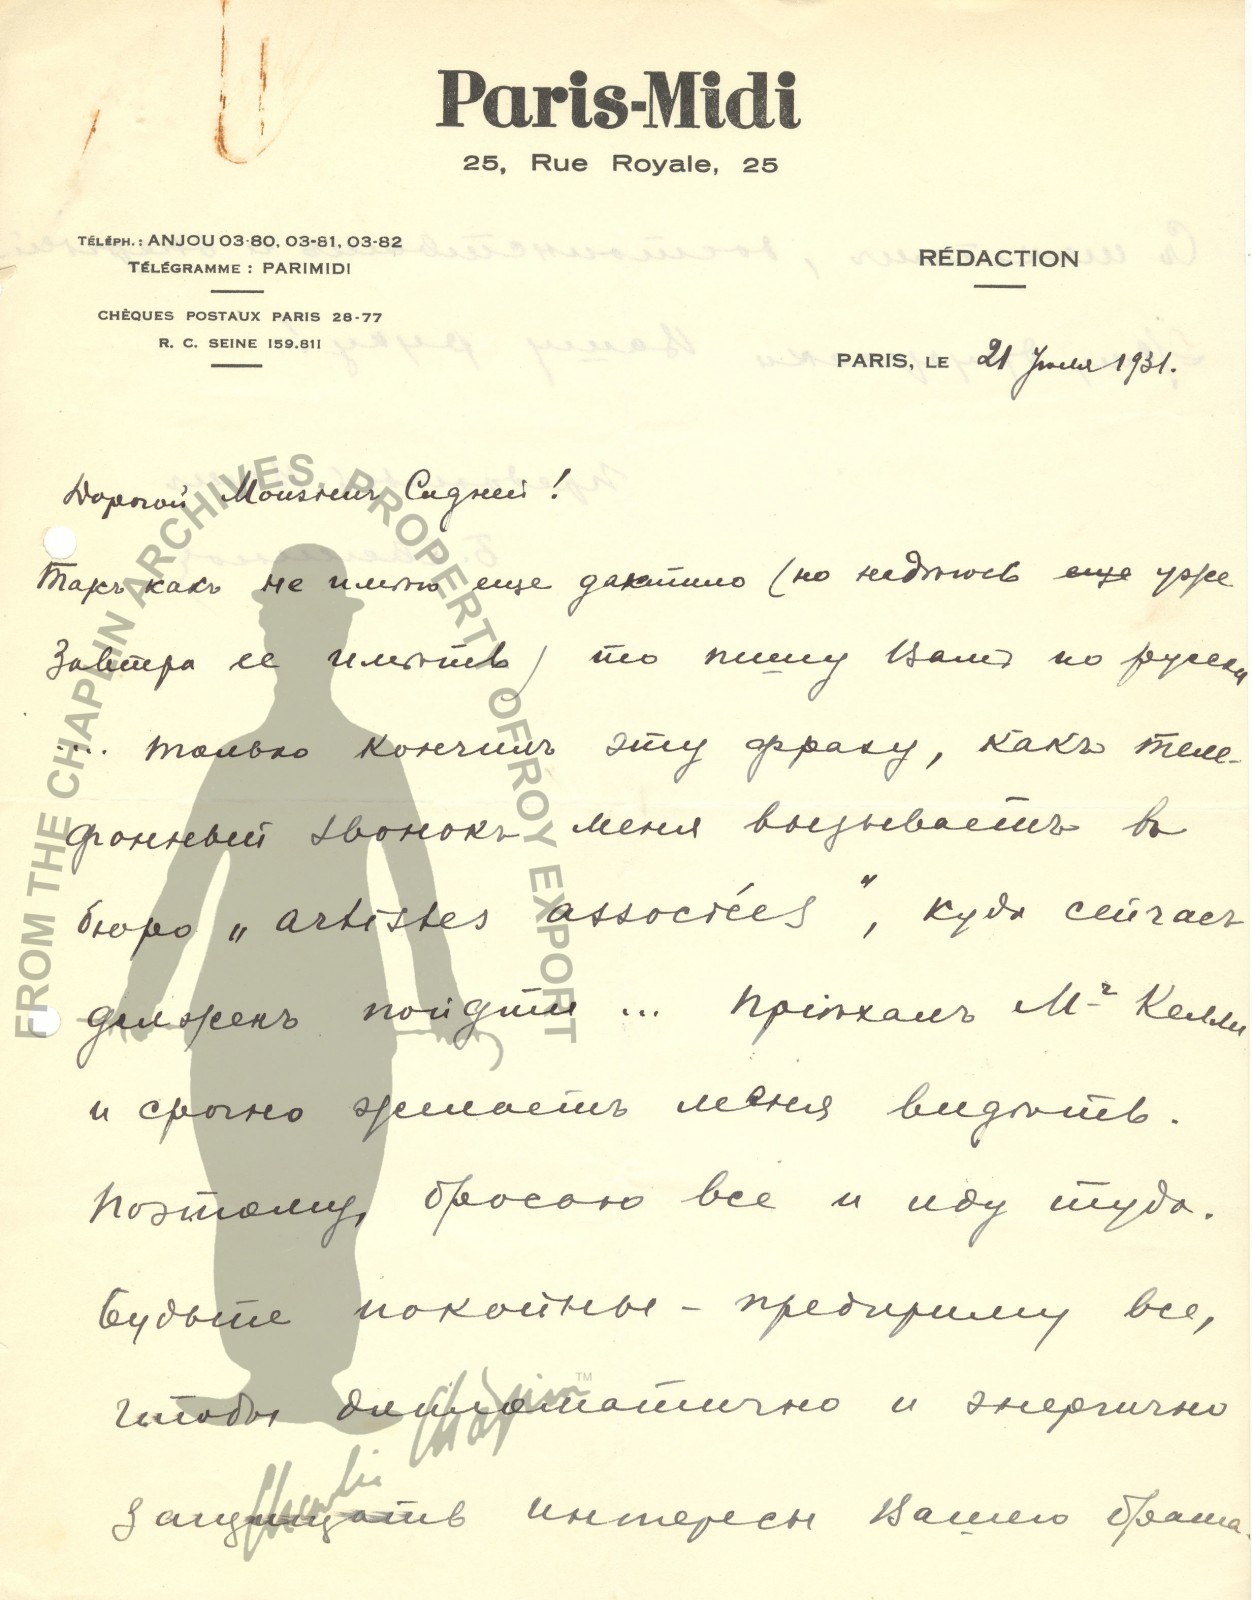 Paris-Midi
25, Rue Royale, 25
TÉLÉPH.: ANJOU 03-80, 03-81, 03-82
TÉLÉGRAMME : PARIMIDI
CHÈQUES POSTAUX PARIS 28-77
R. C. SEINE 159.811
RÉDACTION
PARIS, LE 21 Июля 1931.
Дорогой Monsieur Сидней!
Такъ какъ не имѣю еще дактило (но надѣюсь еще уже
завтра ее имѣть) то пишу Вамъ по русски
.... только кончилъ эту фразу, какъ теле-
фонный звонокъ меня вызываетъ въ
бюро „Artistes associées", куда сейчасъ
долженъ пойдти ... Пріѣхалъ Mr Келли
и срочно желаетъ меня видѣть.
Поэтому, бросаю все и иду туда.
Будьте покойны – предприму все,
чтобы дипломатично и энергично
защищать интересы Вашего брата.
FROM THE CHAPLIN ARCHIVES. PROPERTY OF ROY EXPORT
Charlie Chaplin ™